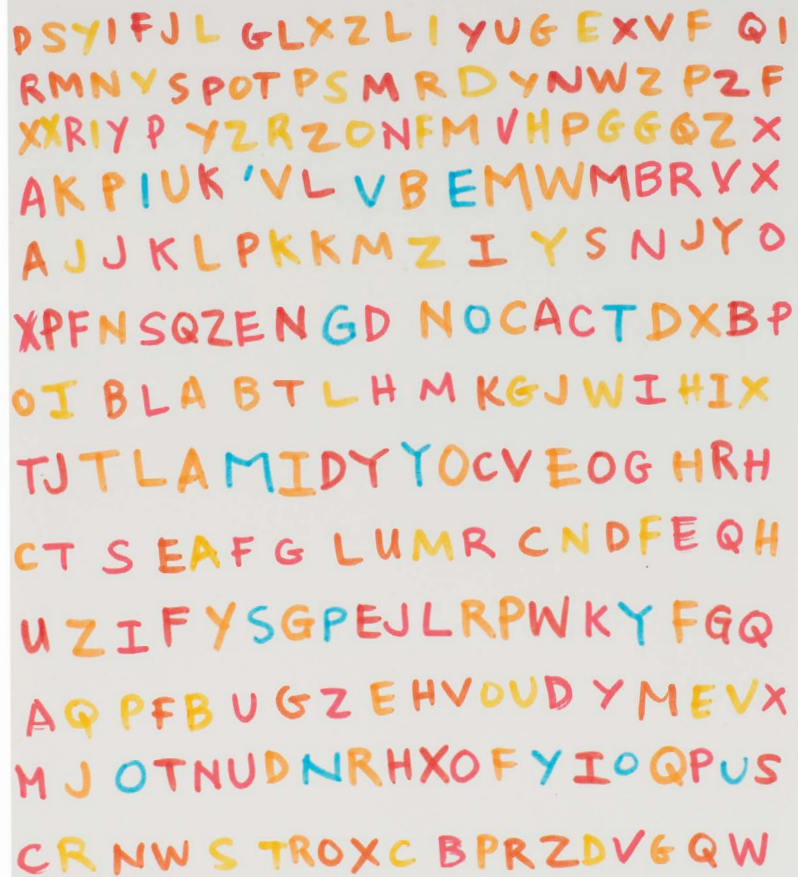 DSYIFJL GLXZLIYUGEXVF QI
RMNYSPOTPSMRDYNWZ PZF
XXRIYP YZRZONFMVHPGGQZX
AKPIUK 'VL VBEMWMBRVX
AJJKLPKKMZIYSNJYO
XPFNSQZENGD NOCACTDXBP
OI BLA BTLHMKGJWIHIX
TJTLAMIDYYOCVEOG HRH
CT S EAFG LUMR CNDFEQH
UZIFYSGPEJLRPWKYFGQ
AQ PFBUGZEHVOUDYMEVX
MJ OTNUDNRHXOFYIOQPUS
CR NW S TROXC BPRZDVGQW